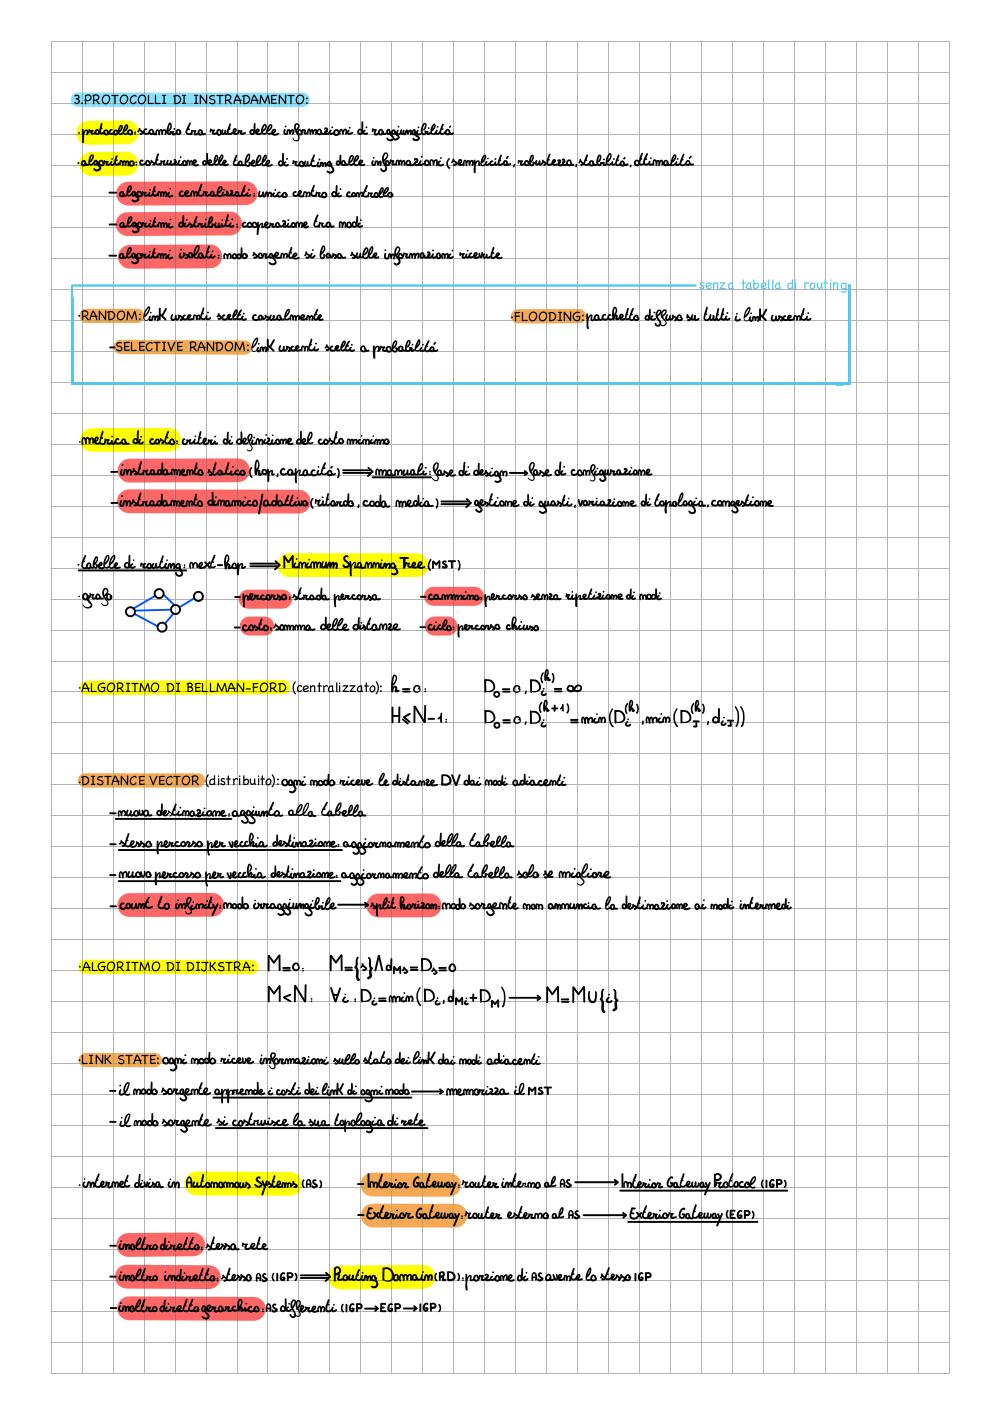 3.PROTOCOLLI DI INSTRADAMENTO:
·protocollo: scambio tra router delle informazioni di raggiungibilitá
·algoritmo: costruzione delle tabelle di routing dalle informazioni (semplicitá, robustezza, stabilitá, ottimalitá
-algoritmi centralizzati: unico centro di controllo
-algoritmi distribuiti: cooperazione tra nodi
-algoritmi isolati: nodo sorgente si basa sulle informazioni ricevute
senza tabella di routing
·RANDOM: link uscenti scelti casualmente ·FLOODING: pacchetto diffuso su tutti i link uscenti
-SELECTIVE RANDOM: link uscenti scelti a probabilitá
·metrica di costo: criteri di definizione del costo minimo
-instradamento statico (hop, capacitá) ⟹ manuali: fase di design ⟶ fase di configurazione
-instradamento dinamico/adattivo (ritardo, coda media) ⟹ gestione di guasti, variazione di topologia, congestione
·tabelle di routing: next-hop ⟹ Minimum Spanning Tree (MST)
·grafo -percorso: strada percorsa -cammino: percorso senza ripetizione di nodi
-costo: somma delle distanze -ciclo: percorso chiuso
·ALGORITMO DI BELLMAN-FORD (centralizzato): h=0: D₀=0, Dᵢ⁽ʰ⁾=∞
H⩽N-1: D₀=0, Dᵢ⁽ʰ⁺¹⁾=min(Dᵢ⁽ʰ⁾, min(D_J⁽ʰ⁾, d_iJ))
·DISTANCE VECTOR (distribuito): ogni nodo riceve le distanze DV dai nodi adiacenti
-nuova destinazione: aggiunta alla tabella
-stesso percorso per vecchia destinazione: aggiornamento della tabella
-nuovo percorso per vecchia destinazione: aggiornamento della tabella solo se migliore
-count to infinity: nodo irraggiungibile ⟶ split horizon: nodo sorgente non annuncia la destinazione ai nodi intermedi
·ALGORITMO DI DIJKSTRA: M=0: M={s}Λd_Ms=D_s=0
M<N: ∀i: D_i=min(D_i, d_Mi+D_M) ⟶ M=M∪{i}
·LINK STATE: ogni nodo riceve informazioni sullo stato dei link dai nodi adiacenti
-il nodo sorgente apprende i costi dei link di ogni nodo ⟶ memorizza il MST
-il nodo sorgente si costruisce la sua topologia di rete
·internet divisa in Autonomous Systems (AS) -Interior Gateway: router interno al AS ⟶ Interior Gateway Protocol (IGP)
-Exterior Gateway: router esterno al AS ⟶ Exterior Gateway (EGP)
-inoltro diretto: stessa rete
-inoltro indiretto: stesso AS (IGP) ⟹ Routing Domain (RD): porzione di AS avente lo stesso IGP
-inoltro diretto gerarchico: AS differenti (IGP→EGP→IGP)